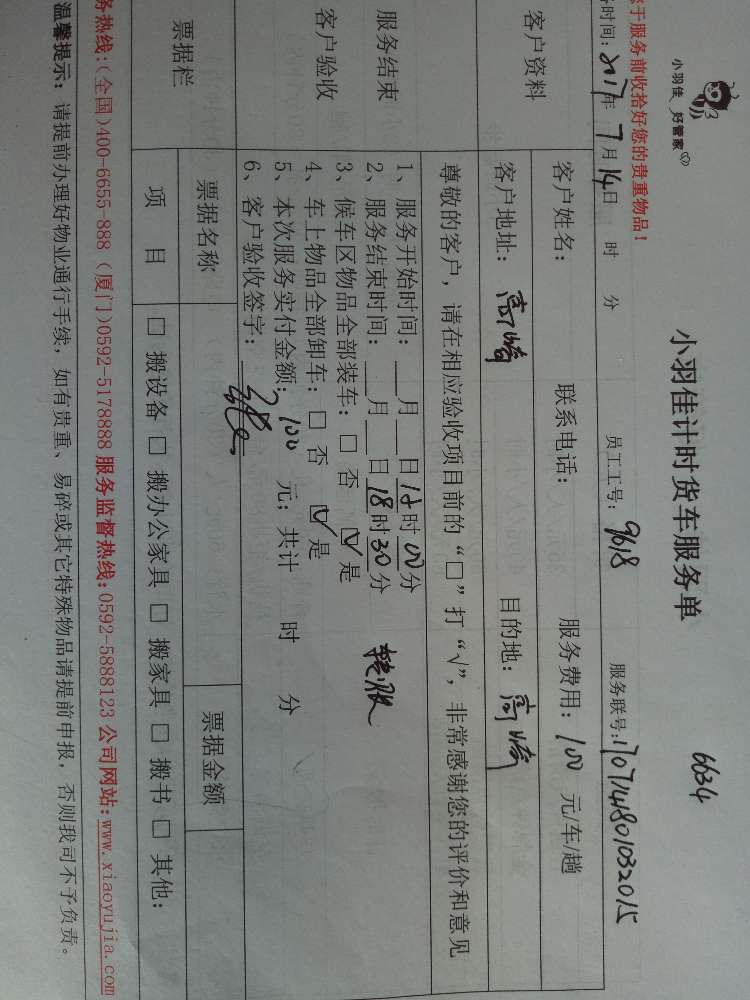 小羽佳 好管家
6634
小羽佳计时货车服务单
于服务前收拾好您的贵重物品！
时间：2017年 7月 14日 时 分 员工工号：9618 服务联号：170714801032015
客户资料
客户姓名： 联系电话： 服务费用：100 元/车/趟
客户地址：高崎 目的地：高崎
服务结束
客户验收
尊敬的客户，请在相应验收项目前的“□”打“√”，非常感谢您的评价和意见
1、服务开始时间：___月___日 时00分
2、服务结束时间：___月___日18时30分
3、候车区物品全部装车：□ 否 ☑ 是
4、车上物品全部卸车：□ 否 ☑ 是
5、本次服务实付金额：100 元；共计 时 分
6、客户验收签字：
票据栏
票据名称 票据金额
项 目 □ 搬设备 □ 搬办公家具 □ 搬家具 □ 搬书 □ 其他：
务热线：(全国)400-6655-888 (厦门)0592-5178888 服务监督热线：0592-5888123 公司网站：www.xiaoyujia.com
温馨提示：请提前办理好物业通行手续，如有贵重、易碎或其它特殊物品请提前申报，否则我司不予负责。